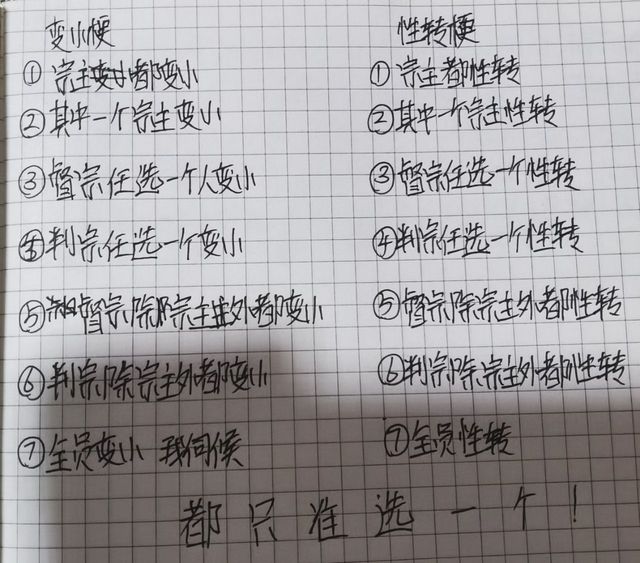 变小梗
①宗主都变小
②其中一个宗主变小
③督宗任选一个人变小
④判宗任选一个变小
⑤督宗除宗主外都变小
⑥判宗除宗主外都变小
⑦全员变小 我伺候
性转梗
①宗主都性转
②其中一个宗主性转
③督宗任选一个性转
④判宗任选一个性转
⑤督宗除宗主外都性转
⑥判宗除宗主外都性转
⑦全员性转
都只准选一个！